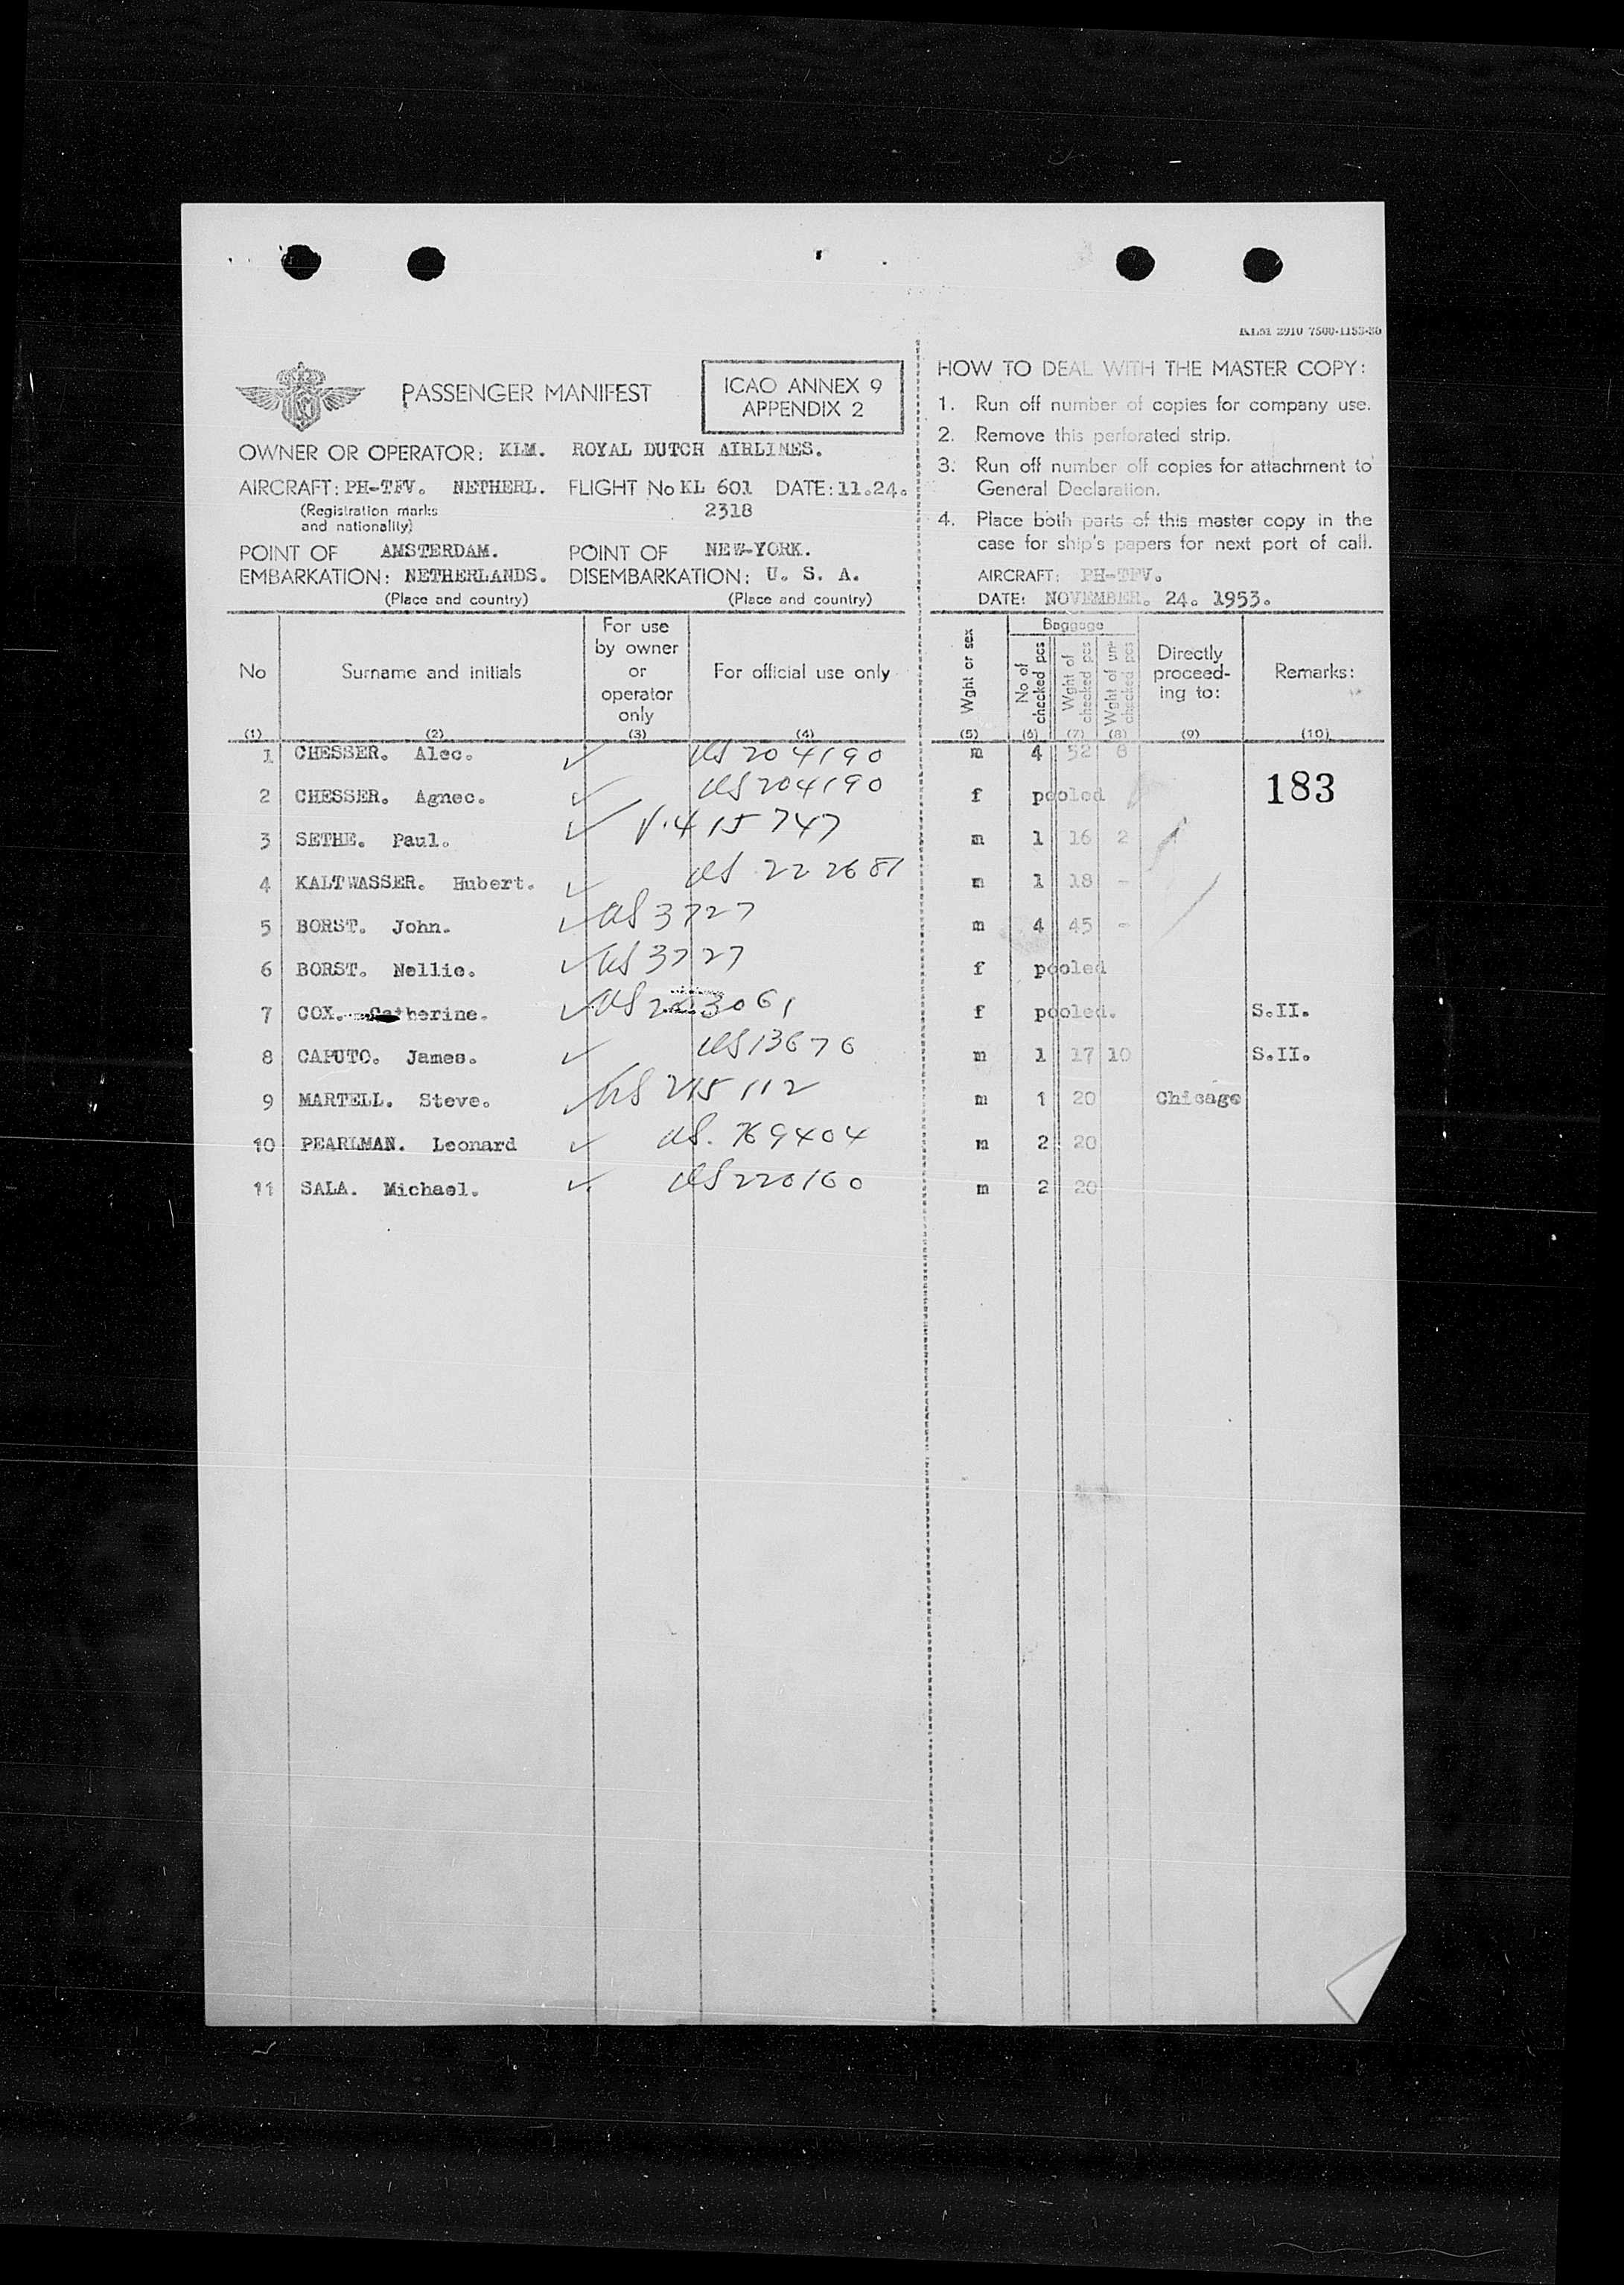 KLM 2910 7500-1153-86
PASSENGER MANIFEST
ICAO ANNEX 9
APPENDIX 2
OWNER OR OPERATOR: KLM. ROYAL DUTCH AIRLINES.
AIRCRAFT: PH-TFV. NETHERL. FLIGHT No KL 601 DATE: 11.24.
(Registration marks
and nationality)
2318
POINT OF EMBARKATION: AMSTERDAM. NETHERLANDS.
(Place and country)
POINT OF DISEMBARKATION: NEW-YORK. U. S. A.
(Place and country)
HOW TO DEAL WITH THE MASTER COPY:
1. Run off number of copies for company use.
2. Remove this perforated strip.
3. Run off number off copies for attachment to
General Declaration.
4. Place both parts of this master copy in the
case for ship's papers for next port of call.
AIRCRAFT: PH-TFV.
DATE: NOVEMBER. 24. 1953.
No Surname and initials For use by owner or operator only For official use only Wght or sex Baggage No of checked pcs Wght of checked pcs Wght of un- checked pcs Directly proceed- ing to: Remarks:
(1) (2) (3) (4) (5) (6) (7) (8) (9) (10)
1 CHESSER. Alec. ✓ US 204190 m 4 52 8
2 CHESSER. Agnec. ✓ US 204190 f pooled
183
3 SETHE. Paul. ✓ V.415747 m 1 16 2
4 KALTWASSER. Hubert. ✓ US 222681 m 1 18 -
5 BORST. John. ✓ US 3727 m 4 45 -
6 BORST. Nellie. ✓ US 3727 f pooled
7 COX. Catherine. ✓ US f pooled. S.II.
8 CAPUTO. James. ✓ US 13676 m 1 17 10 S.II.
9 MARTELL. Steve. ✓ US 215112 m 1 20 Chicago
10 PEARLMAN. Leonard ✓ US. 769404 m 2 20
11 SALA. Michael. ✓ US 220160 m 2 20